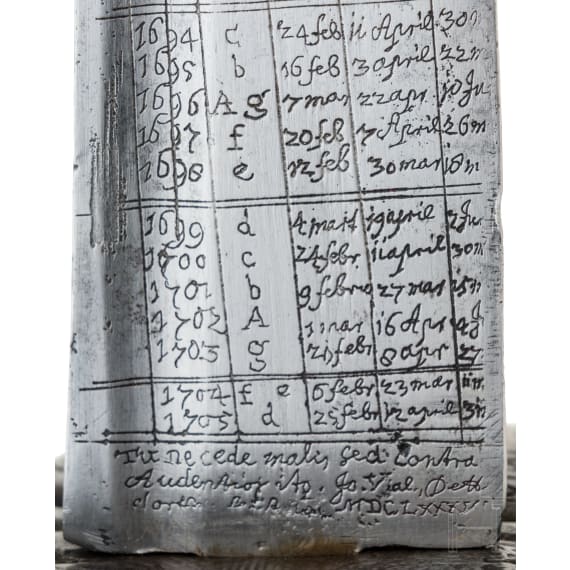 1694 c 24 feb 11 April 30 m
1695 b 16 feb 3 april 22 m
1696 A g 7 mar 22 apr 10 Ju
1697 f 20 feb 7 April 26 m
1698 e 12 feb 30 mar 18 m
1699 d 4 mart 19 april 7 Ju
1700 c 24 febr 11 april 30 m
1701 b 9 febru 27 mar 15 m
1702 A 1 mar 16 Apr 4 J
1703 g 21 febr 8 apr 27
1704 f e 6 febr 23 mar 11 m
1705 d 25 febr 12 april 31
Tu ne cede malis sed contra
Audentior ito. Jo. Vial,
MDCLXXXV